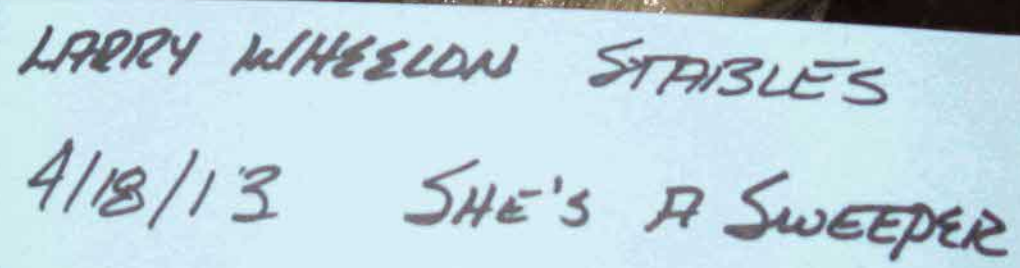 LARRY WHEELON STABLES
4/18/13 SHE'S A SWEEPER